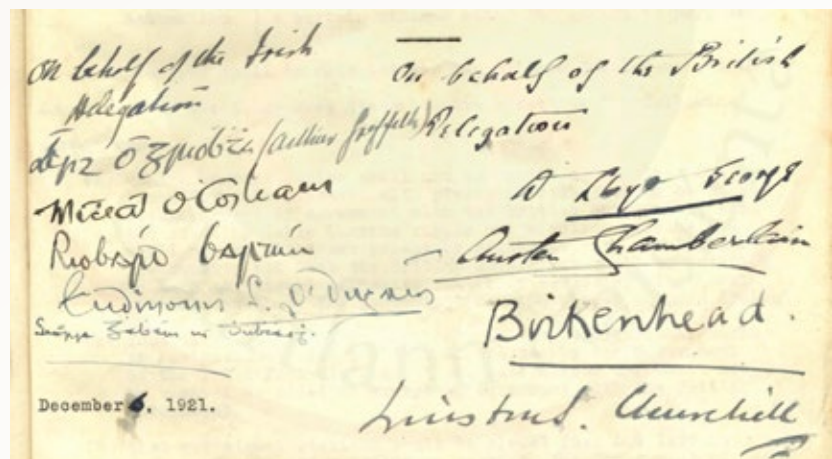 On behalf of the Irish
Delegation
Art Ó Gríobhtha (Arthur Griffith)
Micheál Ó Coileain
Riobárd Bartún
S. Ó Dugain
December 6, 1921.
On behalf of the British
Delegation
D Lloyd George
Austen Chamberlain
Birkenhead.
Winston S. Churchill